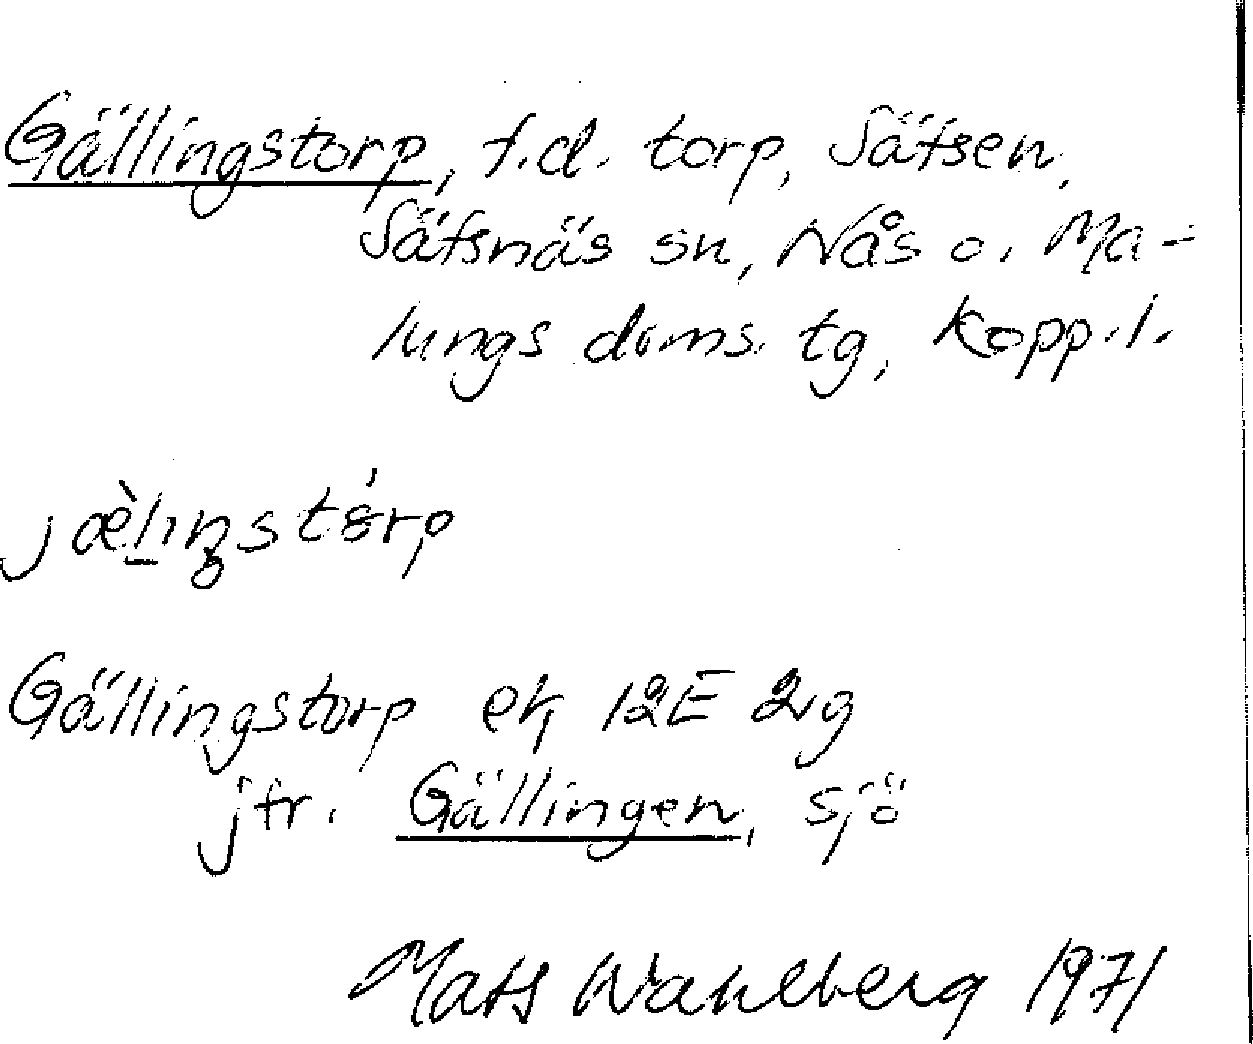 Gällingstorp, f.d. torp, Säfsen,
Säfsnäs sn, Nås o. Ma-
lungs doms. tg, Kopp. l.
Gällingstorp ek 12E 2g
jfr. Gällingen, sjö
Mats Wahlberg 1971